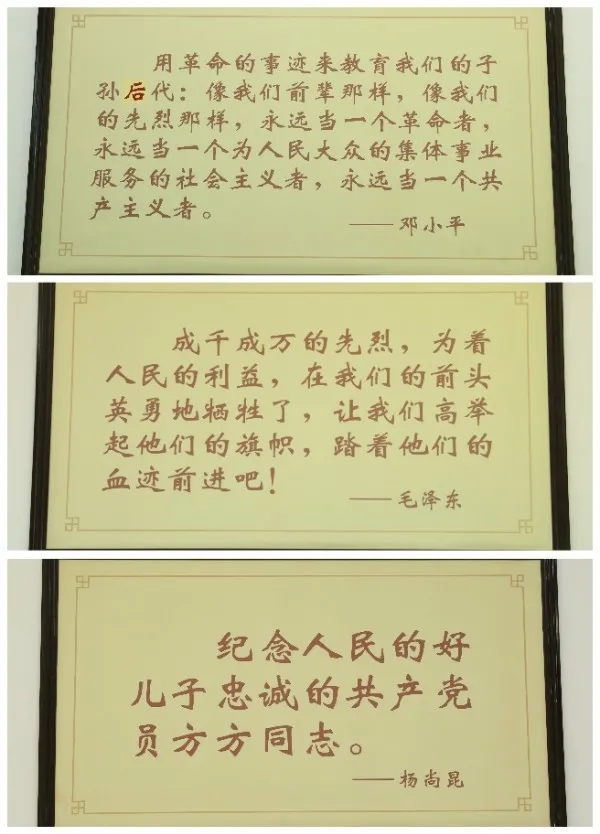 用革命的事迹来教育我们的子
孙后代：像我们前辈那样，像我们
的先烈那样，永远当一个革命者，
永远当一个为人民大众的集体事业
服务的社会主义者，永远当一个共
产主义者。
——邓小平
成千成万的先烈，为着
人民的利益，在我们的前头
英勇地牺牲了，让我们高举
起他们的旗帜，踏着他们的
血迹前进吧！
——毛泽东
纪念人民的好
儿子忠诚的共产党
员方方同志。
——杨尚昆